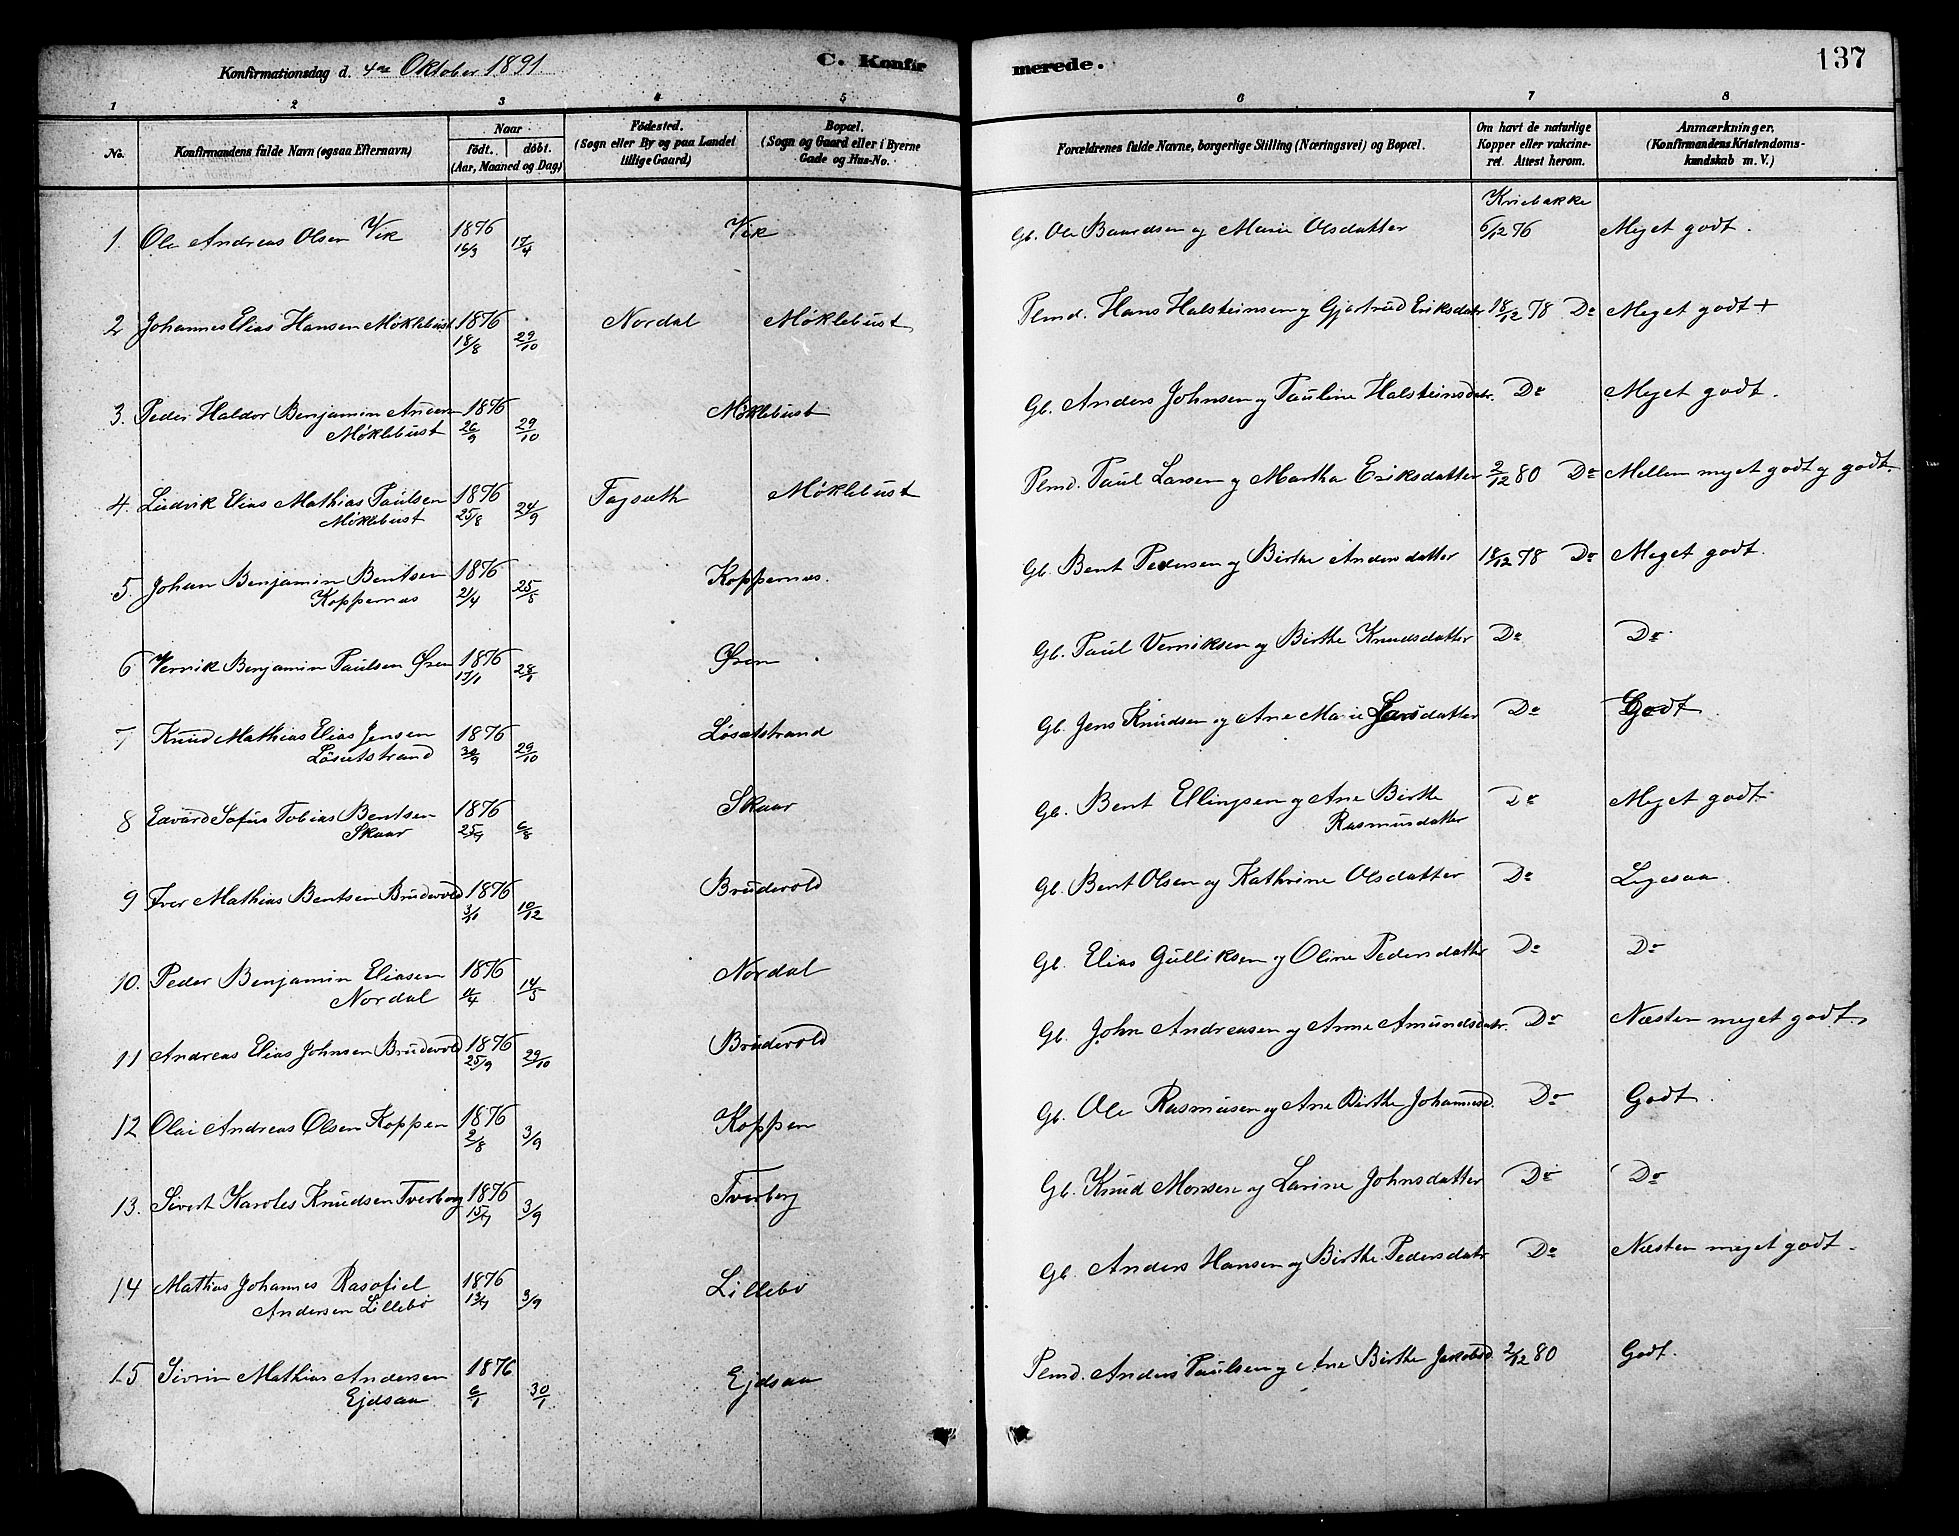 Konfirmationsdag d. 4de Oktober 1891. C. Konfir merede. 137
1 2 3 4 5 6 7 8
No. Konfirmandens fulde Navn (ogsaa Efternavn) Naar födt. döbt. (Aar, Maaned og Dag) Födested. (Sogn eller By og paa Landet tillige Gaard) Bopæl. (Sogn og Gaard eller i Byerne Gade og Hus-No. Forældrenes fulde Navne, borgerlige Stilling (Næringsvei) og Bopæl. Om havt de naturlige Kopper eller vakcineret. Attest herom. Anmærkninger. (Konfirmandens Kristendomskundskab m. V.)
1. Ole Andreas Olsen Vik 1876 16/3 17/4 Vik Gb. Ole Baardsen og Marie Olsdatter Kriebakke 6/12 76 Meget godt.
2 Johannes Elias Hansen Møklebust 1876 18/8 29/10 Nordal Møklebust Plmd. Hans Halsteinsen og Gjertrud Eriksdatr. 18/12 78 Do Meget godt +
3. Peder Haldor Benjamin Anders. 1876 Møklebust Gb. Anders Johnsen og Pauline Halsteinsdatr. Do Meget godt.
Møklebust 26/9 29/10
4. Ludvik Elias Mathias Paulsen 1876 Fagsæth Møklebust Plmd. Paul Larsen og Martha Eriksdatter 2/12 80 Do Mellem meget godt og godt.
Møklebust 25/8 24/9
5. Johan Benjamin Bentsen 1876 Koppernæs. Gb. Bent Pedersen og Birthe Andersdatter 18/12 78 Do Meget godt.
Koppernæs 21/4 25/5
6 Vernik Benjamin Paulsen Øren 1876 17/1 28/1 Øren Gb. Paul Verniksen og Birthe Knudsdatter Do Do
7 Knud Mathias Elias Jensen 1876 Løsætstrand Gb. Jens Knudsen og Ane Marie Larsdatter Do Godt
Løsætstrand 30/9 29/10
8 Edvard Sofus Tobias Bentsen 1876 Skaar Gb. Bent Ellingsen og Ane Birthe Do Meget godt.
Skaar 25/7 6/8 Rasmusdatter
9 Iver Mathias Bentsen Brudevold 1876 10/12 Brudevold Gb. Bent Olsen og Kathrine Olsdatter Do Ligesaa.
10. Peder Benjamin Eliasen 1876 Nordal Gb. Elias Gulliksen og Oline Pedersdatter Do Do
Nordal 14/5
11 Andreas Elias Johnsen Brudevold 1876 25/9 29/10 Brudevold Gb. John Andreasen og Anne Amundsdatr. Do Næsten meget godt.
12 Olai Andreas Olsen Koppen 1876 2/8 3/9 Koppen Gb. Ole Rasmusen og Ane Birthe Johannesd. Do Godt.
13. Sivert Karoles Knudsen Tverborg 1876 15/7 3/9 Tverborg Gb. Knud Monsen og Larine Johnsdatter Do Do
14 Mathias Johannes Rasofiel 1876 Lillebö Gb. Anders Hansen og Birthe Pedersdatr Do Næsten meget godt.
Andersen Lillebö 13/7 3/9
15 Sivrin Mathias Andersen 1876 Ejdsaa Plmd. Anders Paulsen og Ane Birthe Jakobsd. 2/12 80 Godt.
Ejdsaa 6/1 30/1